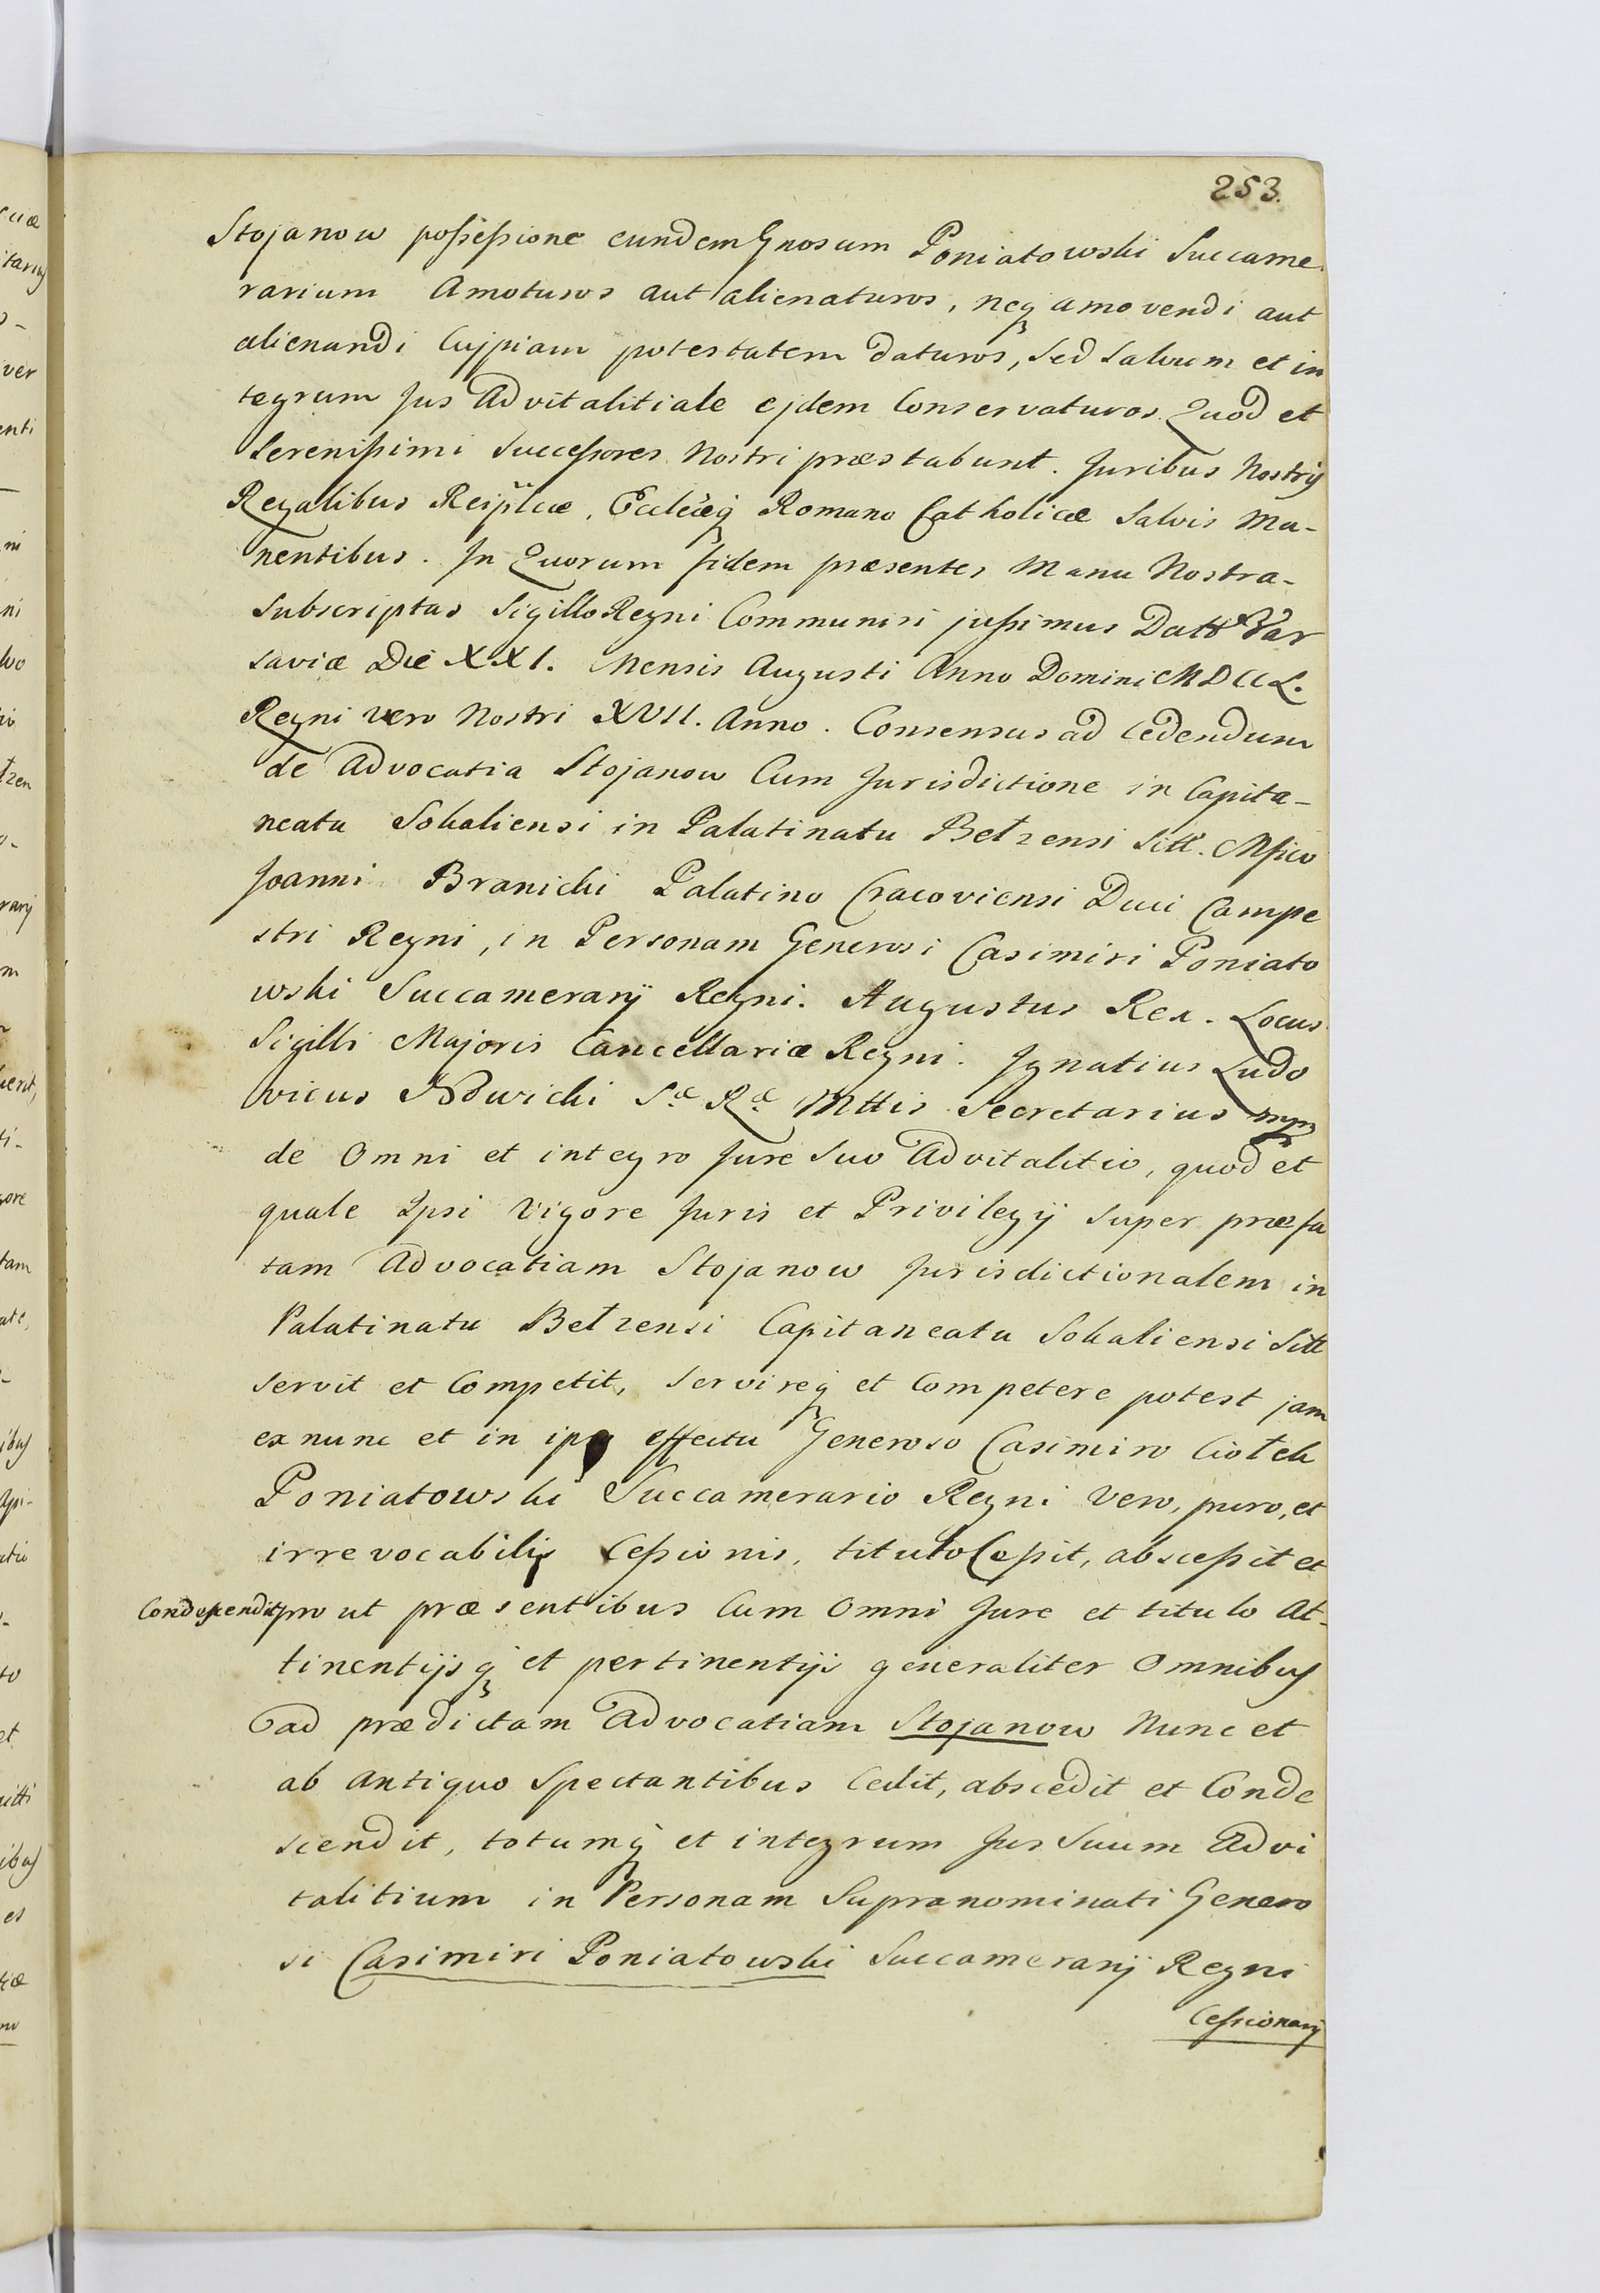 253.
Stojanow possessione eundem Gnosum Poniatowski Succame
rarium Amoturos aut alienaturos, neq amovendi aut
alienandi Cujpiam potestatem daturos, sed salvum et in
tegrum Jus Advitalitiale ejdem Conservaturos. Quod et
Serenissimi Successores Nostri præstabunt. Juribus Nostris
Regalibus Reiplcæ, Eccleæq Romano Catholicæ Salvis Ma-
nentibus. In Quorum fidem præsentes Manu Nostra-
Subscriptas Sigillo Regni Communiri jussimus Datt Var
saviæ Die XXI. Mensis Augusti Anno Domini MDCCL.
Regni vero Nostri XVII. Anno. Consensus ad Cedendum
de Advocatia Stojanow Cum Jurisdictione in Capita-
neatu Sokaliensi in Palatinatu Bełzensi Sitt. Mfico
Joanni Branicki Palatino Cracoviensi Duci Campe
stri Regni, in Personam Generosi Casimiri Poniato
wski Succamerarij Regni. Augustus Rex. Locus
Sigilli Majoris Cancellariæ Regni. Ignatius Ludo
vicus Nowicki Sæ Ræ Mttis Secretarius mp
de Omni et integro Jure Suo Advitalitio, quod et
quale Ipsi Vigore Juris et Privilegij super præfa
tam Advocatiam Stojanow Jurisdictionalem in
Palatinatu Bełzensi Capitaneatu Sokaliensi Sitt
servit et Competit, servireq et Competere potest jam
ex nunc et in ipo effectu Generoso Casimiro Ciołek
Poniatowski Succamerario Regni vero, puro, et
irrevocabilis Cessionis, titulo Cessit, abscessit et
Condescendit, pro ut præsentibus Cum Omni Jure et titulo At-
tinentijsq et pertinentijs generaliter Omnibus
ad prædictam Advocatiam Stojanow Nunc et
ab Antiquo Spectantibus Cedit, abscedit et Conde
scendit, totumq et integrum Jus Suum Advi
talitium in Personam Supranominati Genero
si Casimiri Poniatowski Succamerarij Regni
Cessionarij